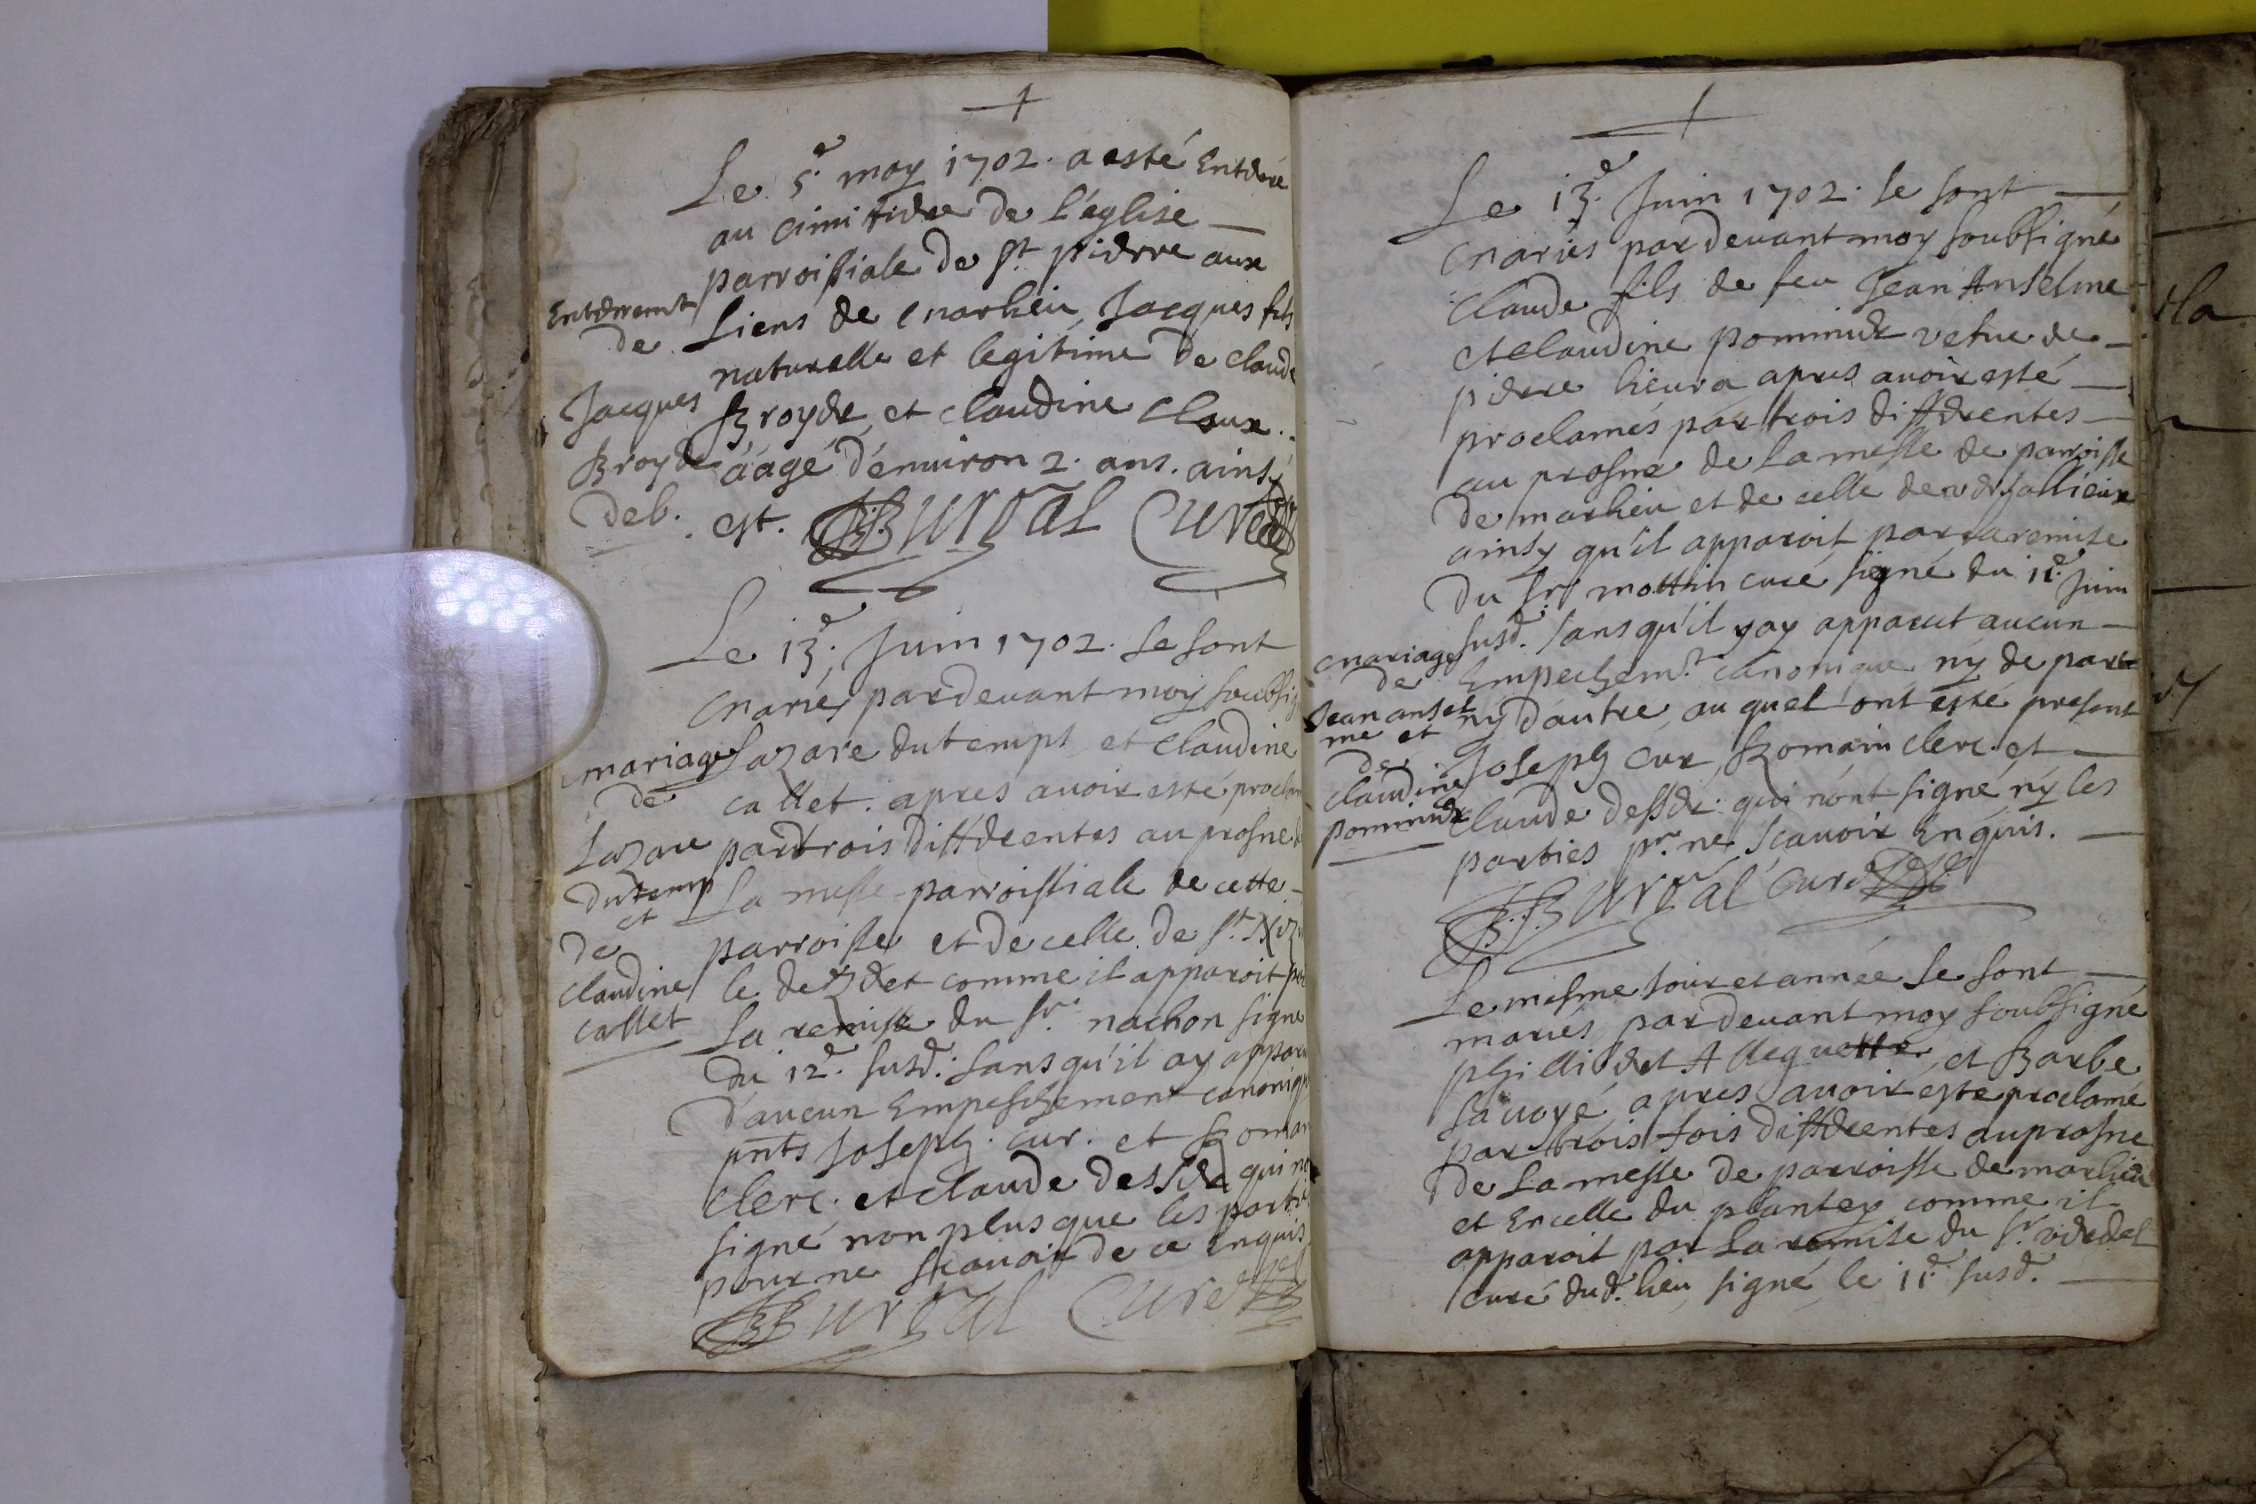 Le 5.e may 1702. a esté Enterré
au cimitiere de l'église
parroissiale de st pierre aux
Liens de marlieu Jacques fils
naturelle et legitime de claude
Broyer et claudine Claux.
áagé d'enuiron 2. ans. ainsy
est. BBurdal Curé
Enterremt
de
Jacques
Broyer
deb.
Le 13.e Juin 1702. se sont
mariés pardeuant moy soubsig
Lazare dutemps et Claudine
callet. apres auoir esté proclam
par trois differentes au prosne de
La messe parroissiale de cette
parroisse et de celle de st
le dezert comme il apparoit par
La remise du sr. nachon signé
du 12.e susd. sans qu'il ay apparu
d'aucun Empeschement canoniq
pnts Joseph. cur. et Romain
Clerc. et claude desser qui n
signé non plus que les partie
pour ne scauoir de ce Enquis
BBurdal Curé
mariage
de
Lazare
dutemp
et
de
claudine
callet
Le 13.e Juin 1702. se sont
mariés pardeuant moy soubsigné
Claude fils de feu Jean Anselme
et claudine pominier vefue de
pierre lieura apres auoir esté
proclamés par trois differentes
au prosne de la messe de parroisse
de marlieu et de celle de versallieux
ainsy qu'il apparoit par la remise
du sr. mottin curé signé du 11.e Juin
susd. sans qu'il y ay apparut aucun
Empechemt. canonique ny de part
ny d'autre, au quel ont esté present
Joseph Cur, Romain clerc. et
claude desser. qui n'ont signé ny les
parties pr. ne scauoir Enquis.
BBurdal Curé
mariage
de
Jean ansel
me et
de
claudine
pominier
Le mesme iour et année se sont
mariés pardeuant moy soubsigné
philibert Alleguette et Barbe
sauoyé apres auoir esté proclamé
par trois fois differentes au prosne
de La messe de parroisse de marlieu
et En celle du plantey comme il
apparoit par La remise du sr. verdet
curé dud. lieu signé le 11.e susd.